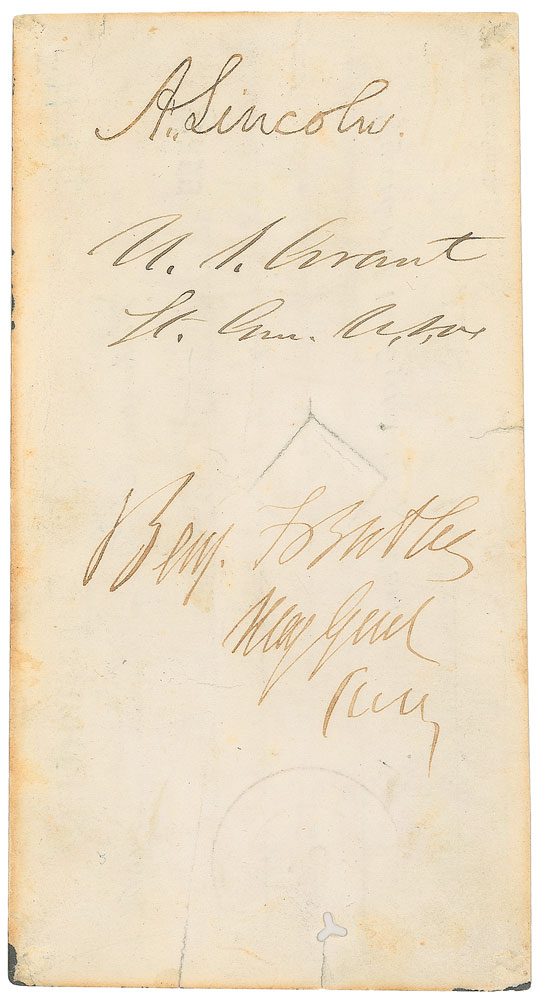 A. Lincoln.
U. S. Grant
Lt. Gen. U.S.A.
Benj. F Butler
Maj Genl